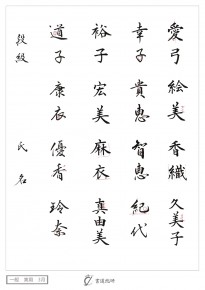 愛弓 絵美 香織 久美子
幸子 貴恵 智恵 紀代
裕子 宏美 麻衣 真由美
道子 康衣 優香 玲奈
段級 氏名